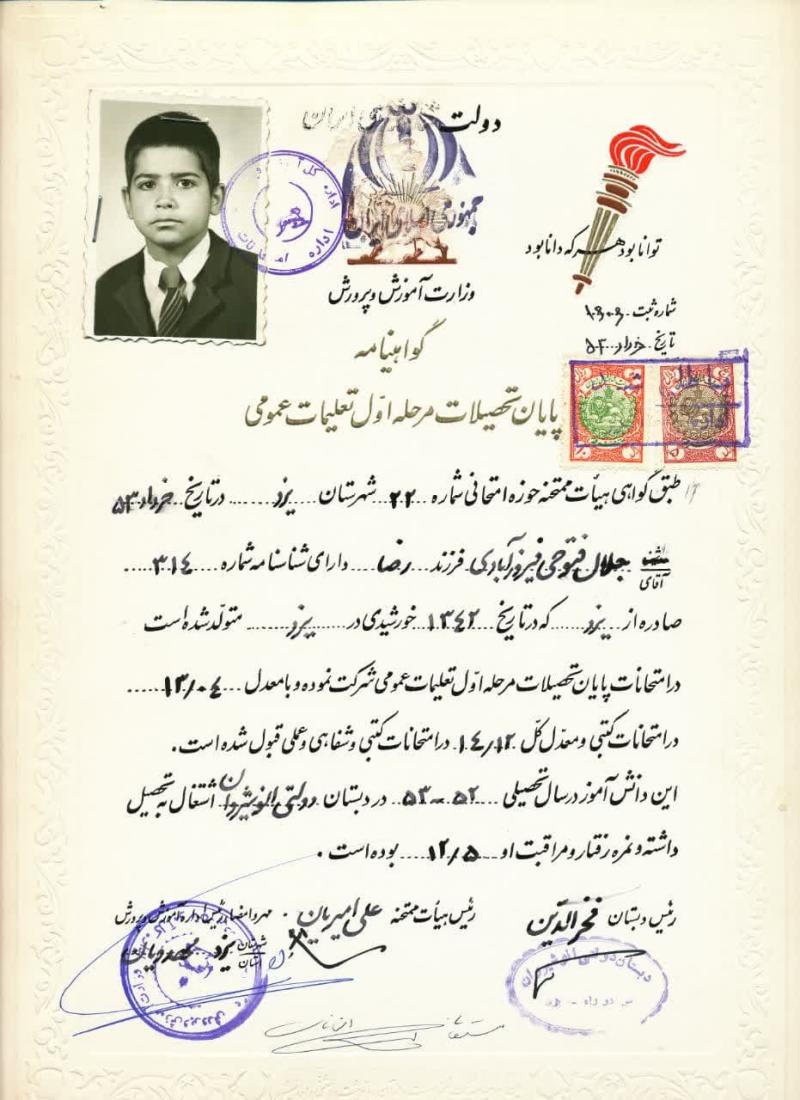 دولت
جمهوری اسلامی ایران
وزارت آموزش و پرورش
توانا بود هر که دانا بود
شماره ثبت
تاریخ خرداد ۵۳
گواهینامه
پایان تحصیلات مرحله اوّل تعلیمات عمومی
طبق گواهی هیأت ممتحنه حوزه امتحانی شماره ۲۲ شهرستان یزد در تاریخ خرداد ۵۳
آقای جلال فتوحی فیروزآبادی فرزند رضا دارای شناسنامه شماره ۳۱۴
صادره از یزد که در تاریخ ۱۳۴۲ خورشیدی در یزد متولّد شده است
در امتحانات پایان تحصیلات مرحله اوّل تعلیمات عمومی شرکت نموده و با معدل ۱۳/۰۴
در امتحانات کتبی و معدّل کلّ ۱۴/۱۲ در امتحانات کتبی و شفاهی و عملی قبول شده است.
این دانش آموز در سال تحصیلی ۵۲-۵۳ در دبستان دولتی انوشیروان اشتغال به تحصیل
داشته و نمره رفتار و مراقبت او ۱۲/۵ بوده است.
رئیس دبستان فخرالدّین
رئیس هیأت ممتحنه علی امیریان
مهر و امضاء رئیس اداره آموزش و پرورش
شهرستان یزد
دبستان دولتی انوشیروان